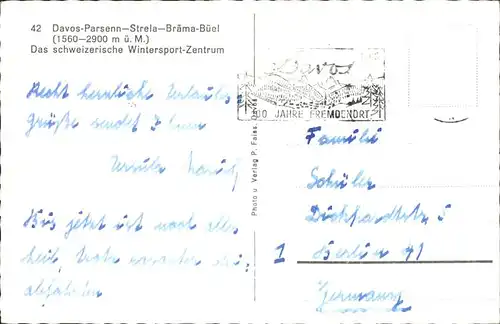 42 Davos-Parsenn—Strela—Bräma-Büel
(1560—2900 m ü. M.)
Das schweizerische Wintersport-Zentrum
Recht herrliche Urlaubs
Grüße sendet Ihnen
Ursula
Bis jetzt ist noch alles
heil
abfahrten
Davos
100 JAHRE FREMDENORT
Photo u. Verlag P. Faiss, Davos
Familie
Schüler
5
1 Berlin 41
Germany